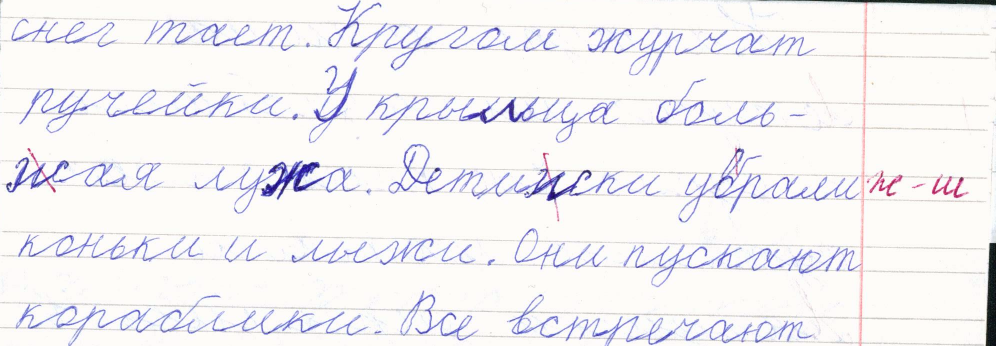 снег тает. Кругом журчат
ручейки. У крыльца боль-
жая лужа. Детижки убрали ж-ш
коньки и лыжи. Они пускают
кораблики. Все встречают